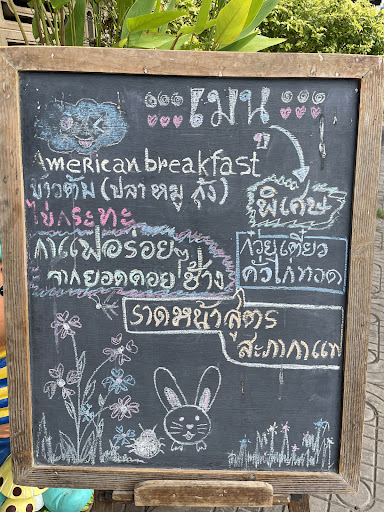 เมนู
American breakfast
ข้าวต้ม (ปลา หมู กุ้ง)
ไข่กระทะ
กาแฟอร่อยๆ
จากยอดดอยช้าง
พิเศษ
ก๋วยเตี๋ยว
คั่วไก่ทอด
ราดหน้าสูตร
สะกาแฟ